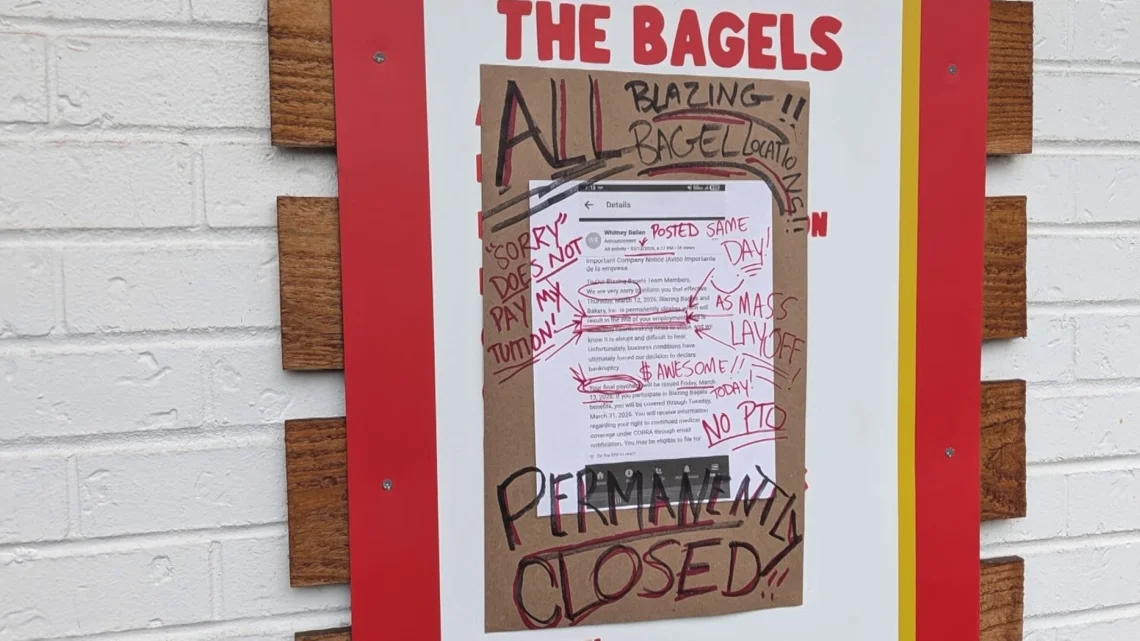 THE BAGELS
ALL BLAZING !!
BAGEL LOCATIONS!!
Details
Whitney
Announcement
Important Company Notice (Aviso Importante
de la empresa
Blazing Bagels Team Members,
We are very sorry to inform you that effective
Thursday, March 12, 2026, Blazing Bagels and
Bakery, Inc. is permanently
result in the end of your employment
know it is abrupt and difficult to hear.
Unfortunately, business conditions have
ultimately forced our decision to declare
bankruptcy.
Your final paycheck will be issued Friday, March
13, 2026. If you participate in Blazing Bagels
benefits, you will be covered through Tuesday,
March 31, 2026. You will receive information
regarding your right to continued medical
coverage under COBRA through email
notification. You may be eligible to file for
POSTED SAME
DAY!
"SORRY"
DOES NOT
PAY MY
TUITION!
AS MASS
LAYOFF
!!
$ AWESOME!!
TODAY!
NO PTO
N
PERMANENTLY
CLOSED!!